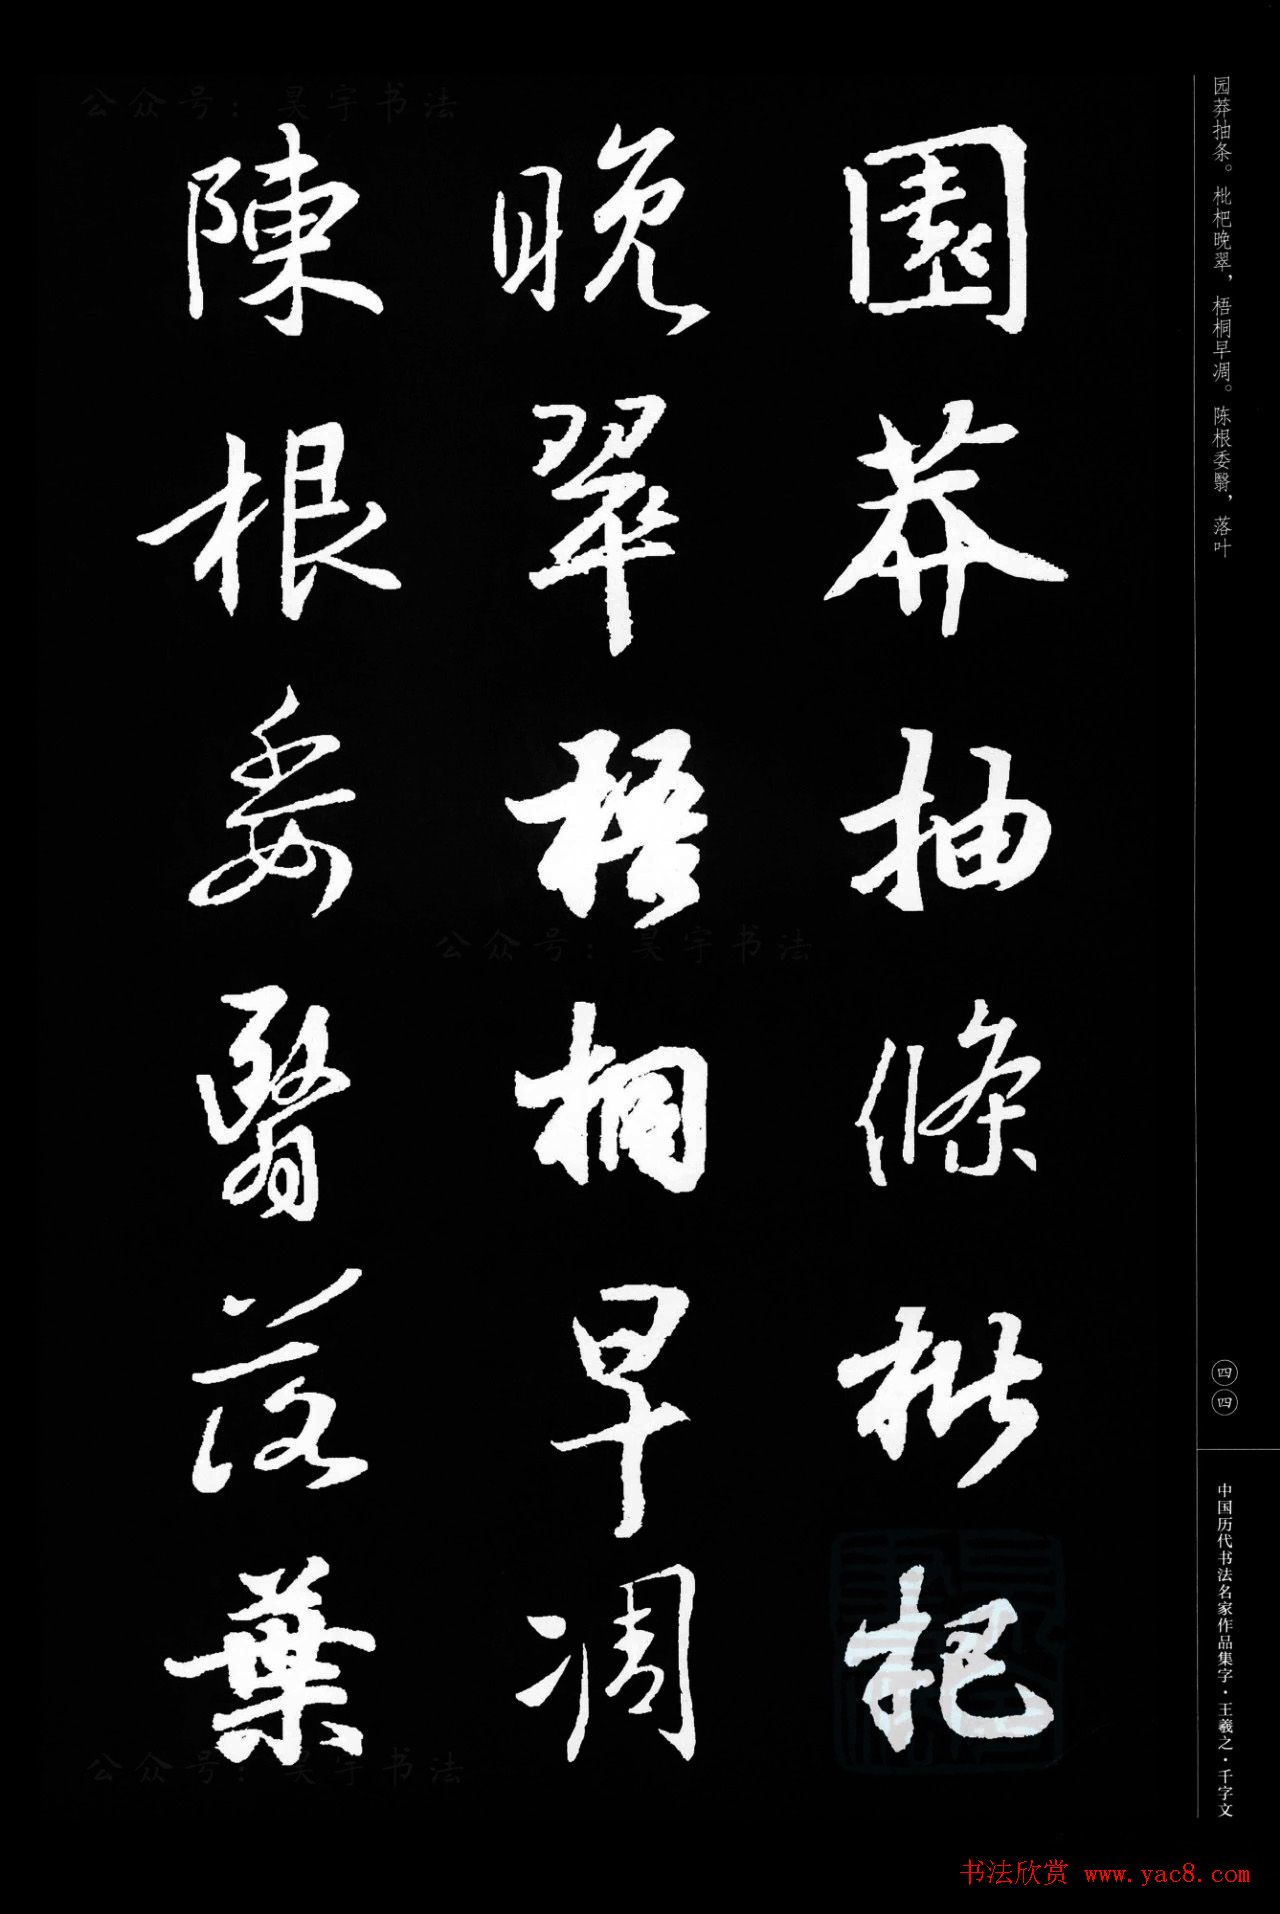 園莽抽條枇杷
晚翠梧桐早凋
陳根委翳落葉
园莽抽条。枇杷晚翠，梧桐早凋。陈根委翳，落叶
四四
中国历代书法名家作品集字·王羲之·千字文
公众号：昊宇书法
公众号：昊宇书法
公众号：昊宇书法
书法欣赏 www.yac8.com